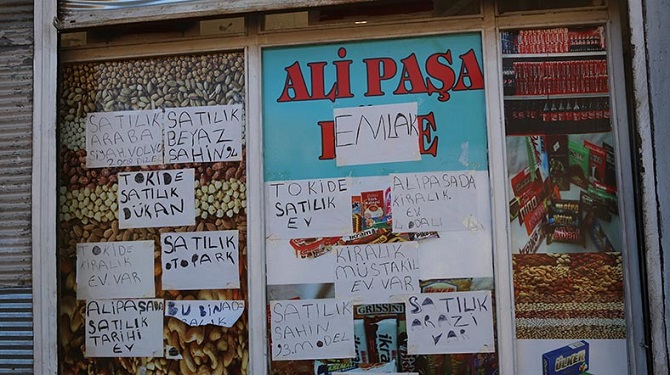 ALİ PAŞA
EMLAKE
SATILIK
ARABA
SİYAH VOLVO
2.008 DİZEL
SATILIK
BEYAZ
ŞAHİN
TOKİDE
SATILIK
DÜKAN
TOKİDE
KİRALIK
EV VAR
SATILIK
OTOPARK
ALİPAŞADA
SATILIK
TARİHİ
EV
BU BİNADE
TOKİDE
SATILIK
EV
ALİPAŞADA
KİRALIK
EV
4 ODALI
KİRALIK
MÜSTAKİL
EV VAR
SATILIK
ŞAHİN
93.MODEL
SATILIK
ARAZİ
VAR
GRISSINI
ÜLKER